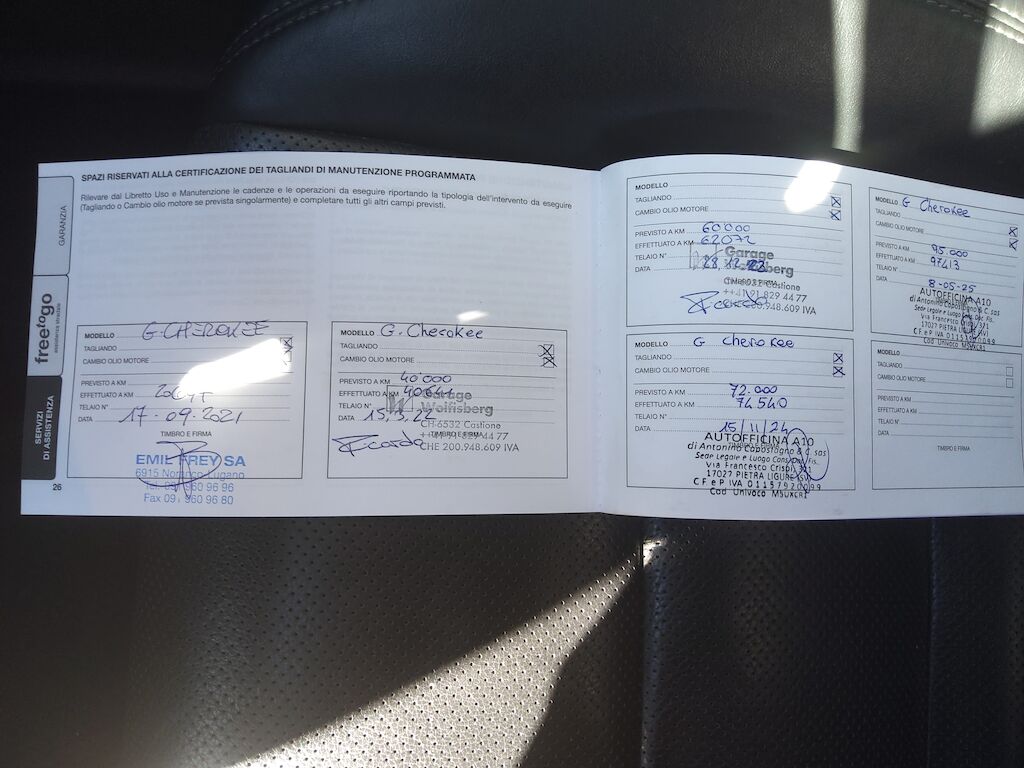 SPAZI RISERVATI ALLA CERTIFICAZIONE DEI TAGLIANDI DI MANUTENZIONE PROGRAMMATA
Rilevare dal Libretto Uso e Manutenzione le cadenze e le operazioni da eseguire riportando la tipologia dell'intervento da eseguire
(Tagliando o Cambio olio motore se prevista singolarmente) e completare tutti gli altri campi previsti.
GARANZIA
freetogo
assistenza stradale
SERVIZI
DI ASSISTENZA
26
MODELLO G.CHEROKEE
TAGLIANDO
CAMBIO OLIO MOTORE
PREVISTO A KM
EFFETTUATO A KM
TELAIO N°
DATA 17-09-2021
TIMBRO E FIRMA
EMIL FREY SA
6915 Noranco-Lugano
960 96 96
Fax 091 960 96 60
MODELLO G. Cherokee
TAGLIANDO
CAMBIO OLIO MOTORE
PREVISTO A KM 40'000
EFFETTUATO A KM 40641
TELAIO N°
DATA 15.3.22
TIMBRO E FIRMA
Garage
Wolfisberg
CH-6532 Castione
829 44 77
CHE 200.948.609 IVA
MODELLO
TAGLIANDO
CAMBIO OLIO MOTORE
PREVISTO A KM 60'000
EFFETTUATO A KM 62072
TELAIO N°
DATA 28.12.22
Garage
Wolfisberg
CH-6532 Castione
++41 91 829 44 77
CHE 200.948.609 IVA
MODELLO G Cherokee
TAGLIANDO
CAMBIO OLIO MOTORE
PREVISTO A KM 72.000
EFFETTUATO A KM 74540
TELAIO N°
DATA 15/11/24
TIMBRO E FIRMA
AUTOFFICINA A10
di Antonino Capostagno & C. sas
Sede Legale e Luogo Cons. Doc. Fis.
Via Francesco Crispi, 321
17027 PIETRA LIGURE (SV)
C F e P IVA 01157920099
Cod Univoco M5UXCR1
MODELLO G Cherokee
TAGLIANDO
CAMBIO OLIO MOTORE
PREVISTO A KM 95.000
EFFETTUATO A KM 97413
TELAIO N°
DATA 8-05-25
AUTOFFICINA A10
di Antonino Capostagno & C. sas
Sede Legale e Luogo Cons. Doc. Fis.
Via Francesco Crispi, 321
17027 PIETRA LIGURE (SV)
C F e P IVA 01157920099
Cod Univoco M5UXCR1
MODELLO
TAGLIANDO
CAMBIO OLIO MOTORE
PREVISTO A KM
EFFETTUATO A KM
TELAIO N°
DATA
TIMBRO E FIRMA